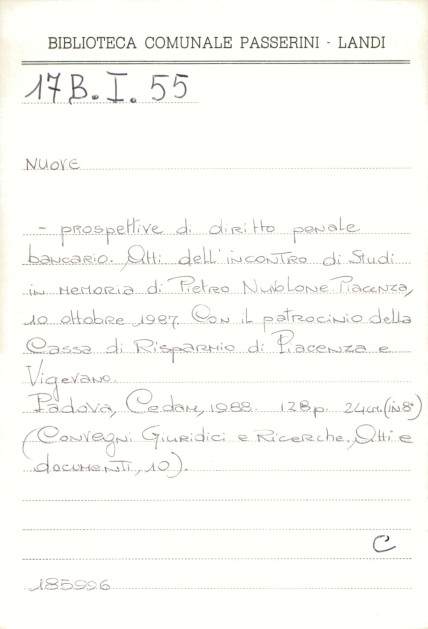 BIBLIOTECA COMUNALE PASSERINI - LANDI
17B. I. 55
NUOVE
- prospettive di diritto penale
bancario. Atti dell'incontro di Studi
in memoria di Pietro Nuvolone. Piacenza,
10 ottobre 1987. Con il patrocinio della
Cassa di Risparmio di Piacenza e
Vigevano.
Padova, Cedam, 1988. 128p. 24cm. (in 8°)
(Convegni Giuridici e Ricerche. Atti e
documenti, 10).
C
185996